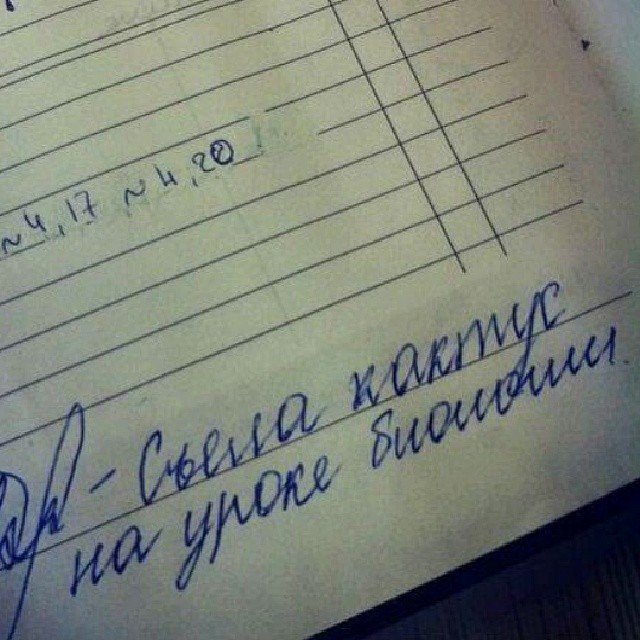 №4,17 №4,20
- Съела кактус
на уроке биологии.